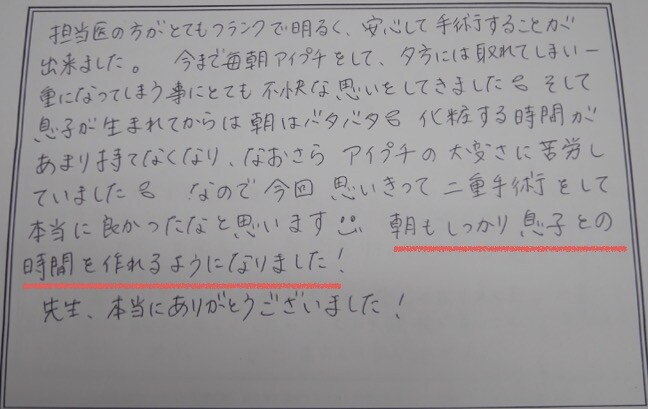 担当医の方がとてもフランクで明るく、安心して手術することが
出来ました。 今まで毎朝アイプチをして、夕方には取れてしまい一
重になってしまう事にとても不快な思いをしてきました。 そして
息子が生まれてからは朝はバタバタ。 化粧する時間が
あまり持てなくなり、なおさら アイプチの大変さに苦労し
ていました。 なので今回 思いきって二重手術をして
本当に良かったなと思います 朝もしっかり息子との
時間を作れるようになりました!
先生、本当にありがとうございました!